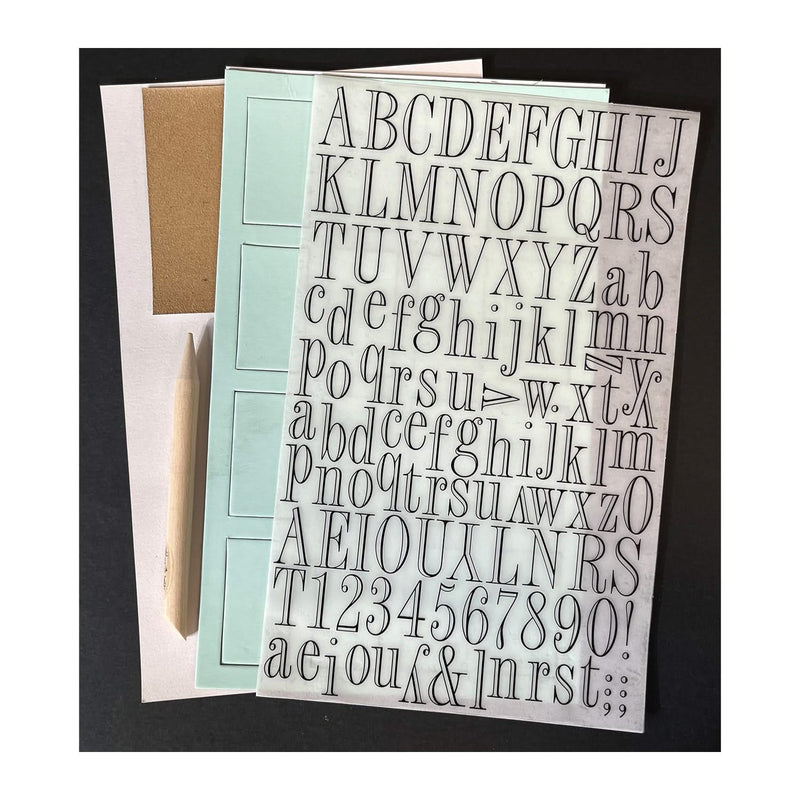 ABCDEFGHIJ
KLMNOPQRS
TUVWXYZab
cdefghijklmn
poqrsuvw.xtyz
abdcefghijklm
pnoqtrsuvwxzO
AEIOUYLNRS
T1234567890!
aeiouy&lnrst;;